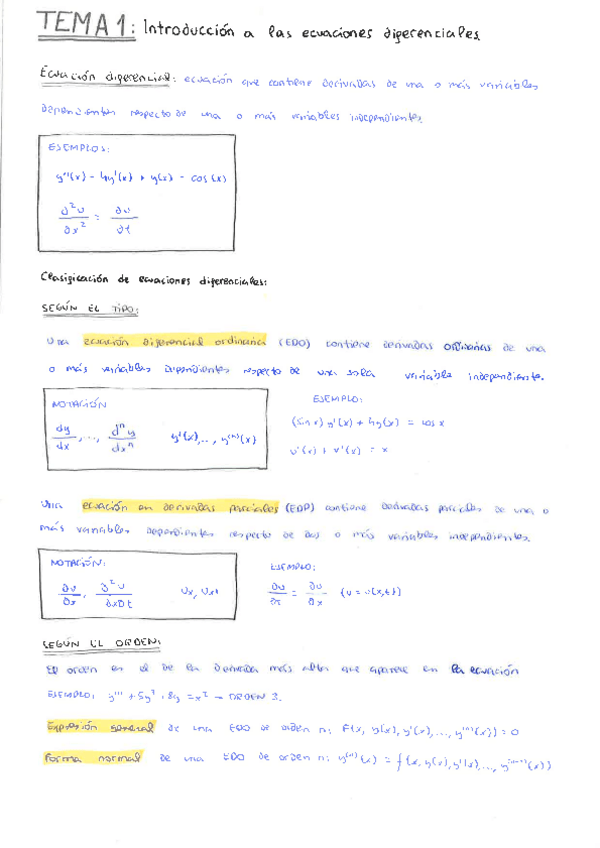 TEMA 1: Introducción a las ecuaciones diferenciales.
Ecuación diferencial: ecuación que contiene derivadas de una o más variables
dependientes respecto de una o más variables independientes.
EJEMPLOS:
y''(x) - 4y'(x) + y(x) = cos(x)
∂²u/∂x² = ∂u/∂t
Clasificación de ecuaciones diferenciales:
SEGÚN EL TIPO:
Una ecuación diferencial ordinaria (EDO) contiene derivadas ordinarias de una
o más variables dependientes respecto de una sola variable independiente.
NOTACIÓN
dy/dx, ..., dⁿy/dxⁿ y'(x), ..., y⁽ⁿ⁾(x)
EJEMPLO:
(sin x) y'(x) + 4y(x) = cos x
u'(x) + v'(x) = x
Una ecuación en derivadas parciales (EDP) contiene derivadas parciales de una o
más variables dependientes respecto de dos o más variables independientes.
NOTACIÓN:
∂u/∂x, ∂²u/∂x∂t Ux, Uxt
EJEMPLO:
∂u/∂t = ∂u/∂x (u = u(x,t))
SEGÚN EL ORDEN:
El orden en el de la derivada más alta que aparece en la ecuación
EJEMPLO: y''' + 5y² + 8y = x² → ORDEN 3.
Expresión general de una EDO de orden n: F(x, y(x), y'(x), ..., y⁽ⁿ⁾(x)) = 0
Forma normal de una EDO de orden n: y⁽ⁿ⁾(x) = f(x, y(x), y'(x), ..., y⁽ⁿ⁻¹⁾(x))